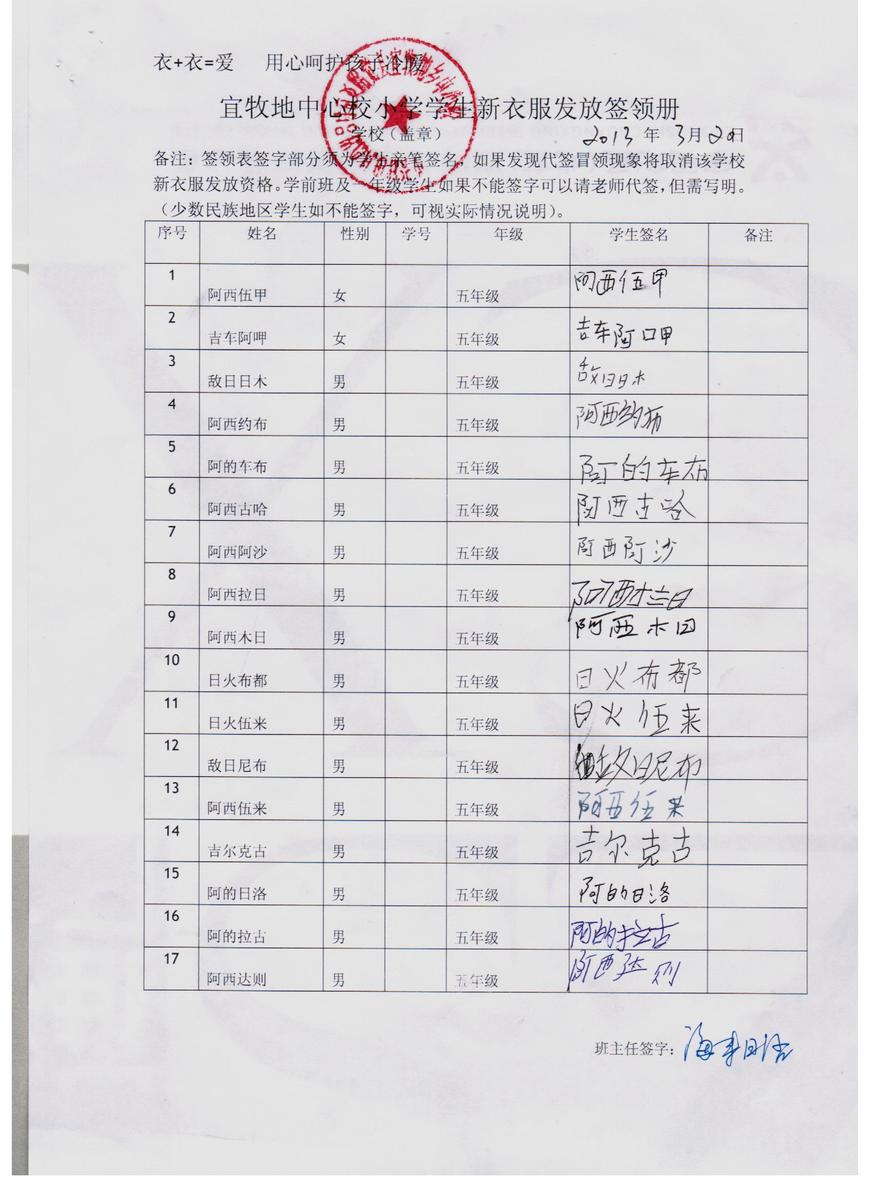 衣+衣=爱 用心呵护孩子冷暖
宜牧地中心校小学学生新衣服发放签领册
学校（盖章） 2013 年 3月20日
备注：签领表签字部分须为学生亲笔签名，如果发现代签冒领现象将取消该学校
新衣服发放资格。学前班及一年级学生如果不能签字可以请老师代签，但需写明。
（少数民族地区学生如不能签字，可视实际情况说明）。
序号 姓名 性别 学号 年级 学生签名 备注
1 阿西伍甲 女 五年级 阿西伍甲
2 吉车阿呷 女 五年级 吉车阿呷
3 敌日日木 男 五年级 敌日日木
4 阿西约布 男 五年级 阿西约布
5 阿的车布 男 五年级 阿的车布
6 阿西古哈 男 五年级 阿西古哈
7 阿西阿沙 男 五年级 阿西阿沙
8 阿西拉日 男 五年级 阿西拉日
9 阿西木日 男 五年级 阿西木日
10 日火布都 男 五年级 日火布都
11 日火伍来 男 五年级 日火伍来
12 敌日尼布 男 五年级 敌日尼布
13 阿西伍来 男 五年级 阿西伍来
14 吉尔克古 男 五年级 吉尔克古
15 阿的日洛 男 五年级 阿的日洛
16 阿的拉古 男 五年级 阿的拉古
17 阿西达则 男 五年级 阿西达则
班主任签字：